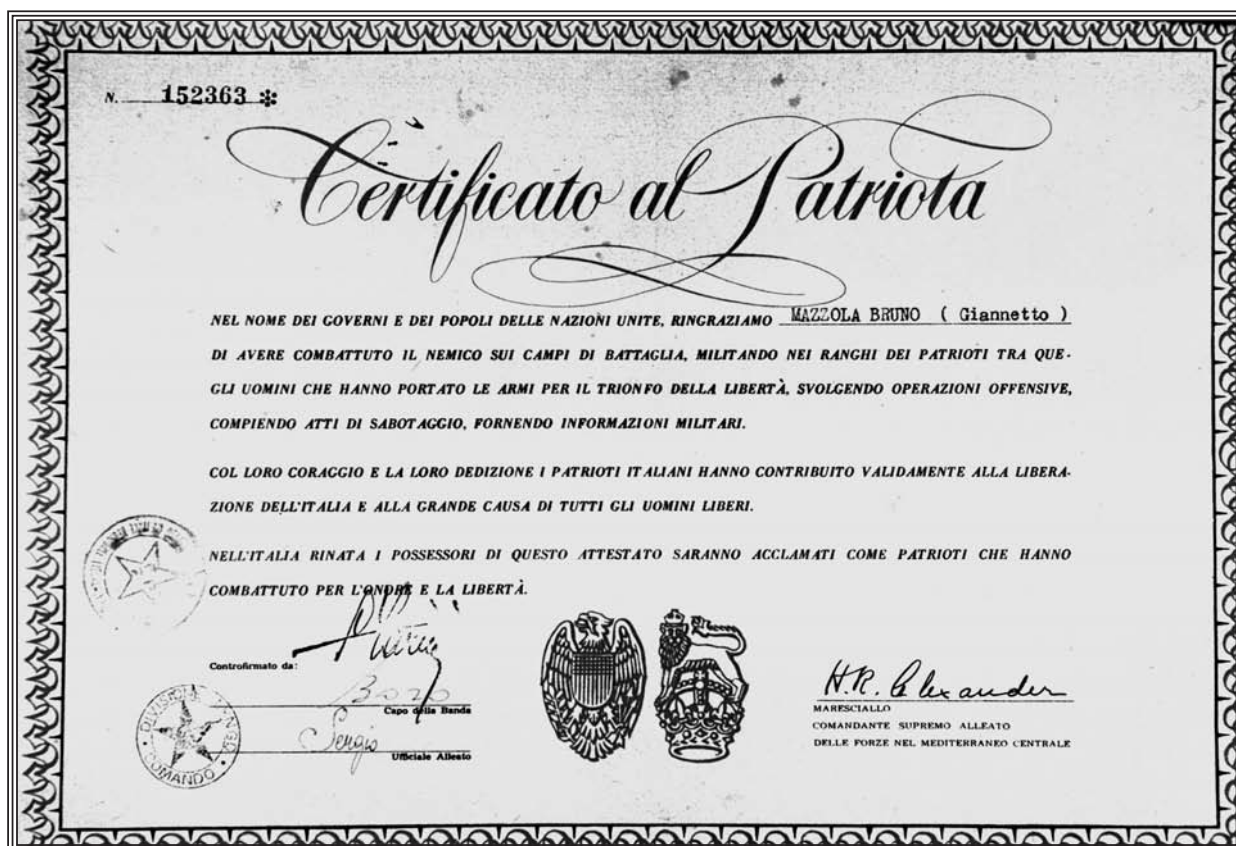 N. 152363 *
Certificato al Patriota
NEL NOME DEI GOVERNI E DEI POPOLI DELLE NAZIONI UNITE, RINGRAZIAMO MAZZOLA BRUNO ( Giannetto )
DI AVERE COMBATTUTO IL NEMICO SUI CAMPI DI BATTAGLIA, MILITANDO NEI RANGHI DEI PATRIOTI TRA QUE-
GLI UOMINI CHE HANNO PORTATO LE ARMI PER IL TRIONFO DELLA LIBERTÀ, SVOLGENDO OPERAZIONI OFFENSIVE,
COMPIENDO ATTI DI SABOTAGGIO, FORNENDO INFORMAZIONI MILITARI.
COL LORO CORAGGIO E LA LORO DEDIZIONE I PATRIOTI ITALIANI HANNO CONTRIBUITO VALIDAMENTE ALLA LIBERA-
ZIONE DELL'ITALIA E ALLA GRANDE CAUSA DI TUTTI GLI UOMINI LIBERI.
NELL'ITALIA RINATA I POSSESSORI DI QUESTO ATTESTATO SARANNO ACCLAMATI COME PATRIOTI CHE HANNO
COMBATTUTO PER L'ONORE E LA LIBERTÀ.
Controfirmato da:
Bozo
Capo della Banda
Sergio
Ufficiale Alleato
DIVISIONE
COMANDO
H.R. Alexander
MARESCIALLO
COMANDANTE SUPREMO ALLEATO
DELLE FORZE NEL MEDITERRANEO CENTRALE